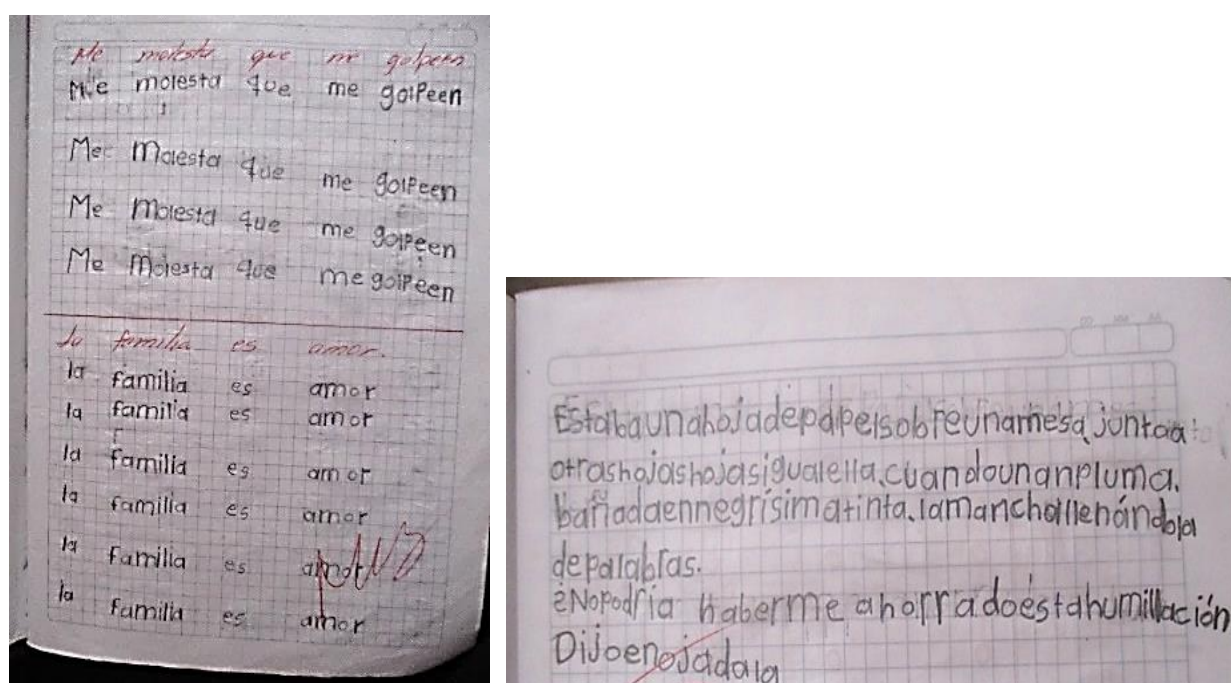 Me molesta que me golpeen
Me molesta que me golpeen
Me molesta que me golpeen
Me molesta que me golpeen
Me molesta que me golpeen
la familia es amor.
la familia es amor
la familia es amor
la familia es amor
la familia es amor
la familia es amor
la familia es amor
Estabaunahojadepapelsobreunamesa, juntaa
otrashojashojasigualella, cuandounanpluma,
bañadaennegrísimatinta, lamanchallenándola
depalabras.
¿Nopodría haberme ahorradoéstahumillación
Dijoenojadala